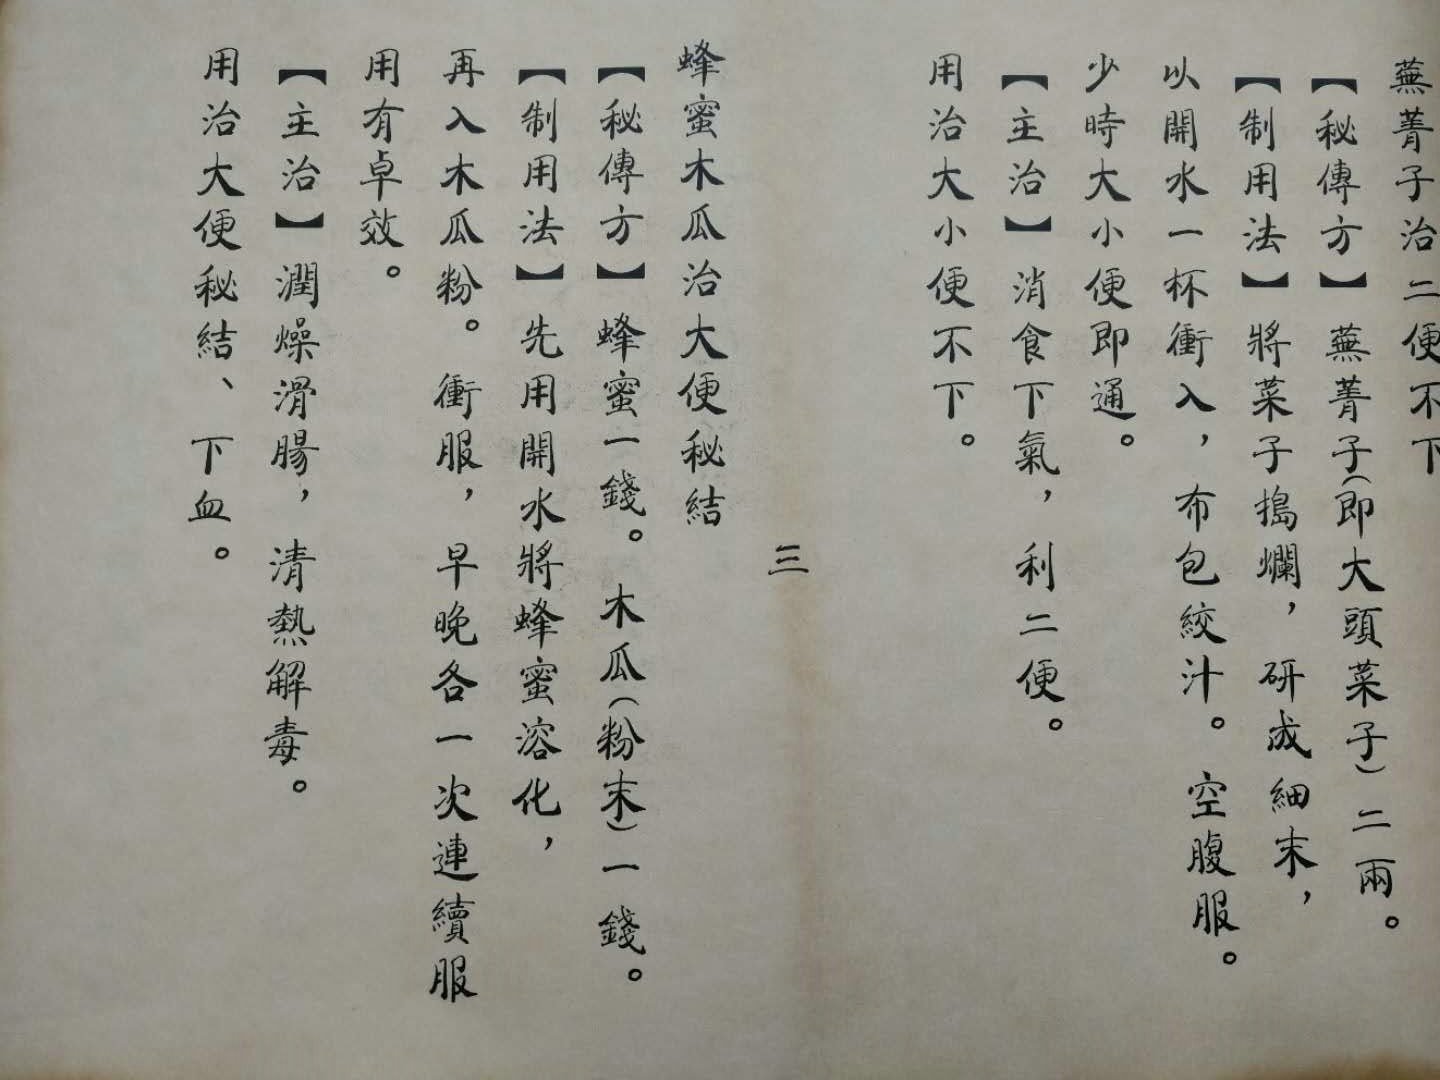 蕪菁子治二便不下
【秘傳方】蕪菁子(即大頭菜子)二兩。
【制用法】將菜子搗爛，研成細末，
以開水一杯衝入，布包絞汁。空腹服。
少時大小便即通。
【主治】消食下氣，利二便。
用治大小便不下。
三
蜂蜜木瓜治大便秘結
【秘傳方】蜂蜜一錢。木瓜(粉末)一錢。
【制用法】先用開水將蜂蜜溶化，
再入木瓜粉。衝服，早晚各一次連續服
用有卓效。
【主治】潤燥滑腸，清熱解毒。
用治大便秘結、下血。